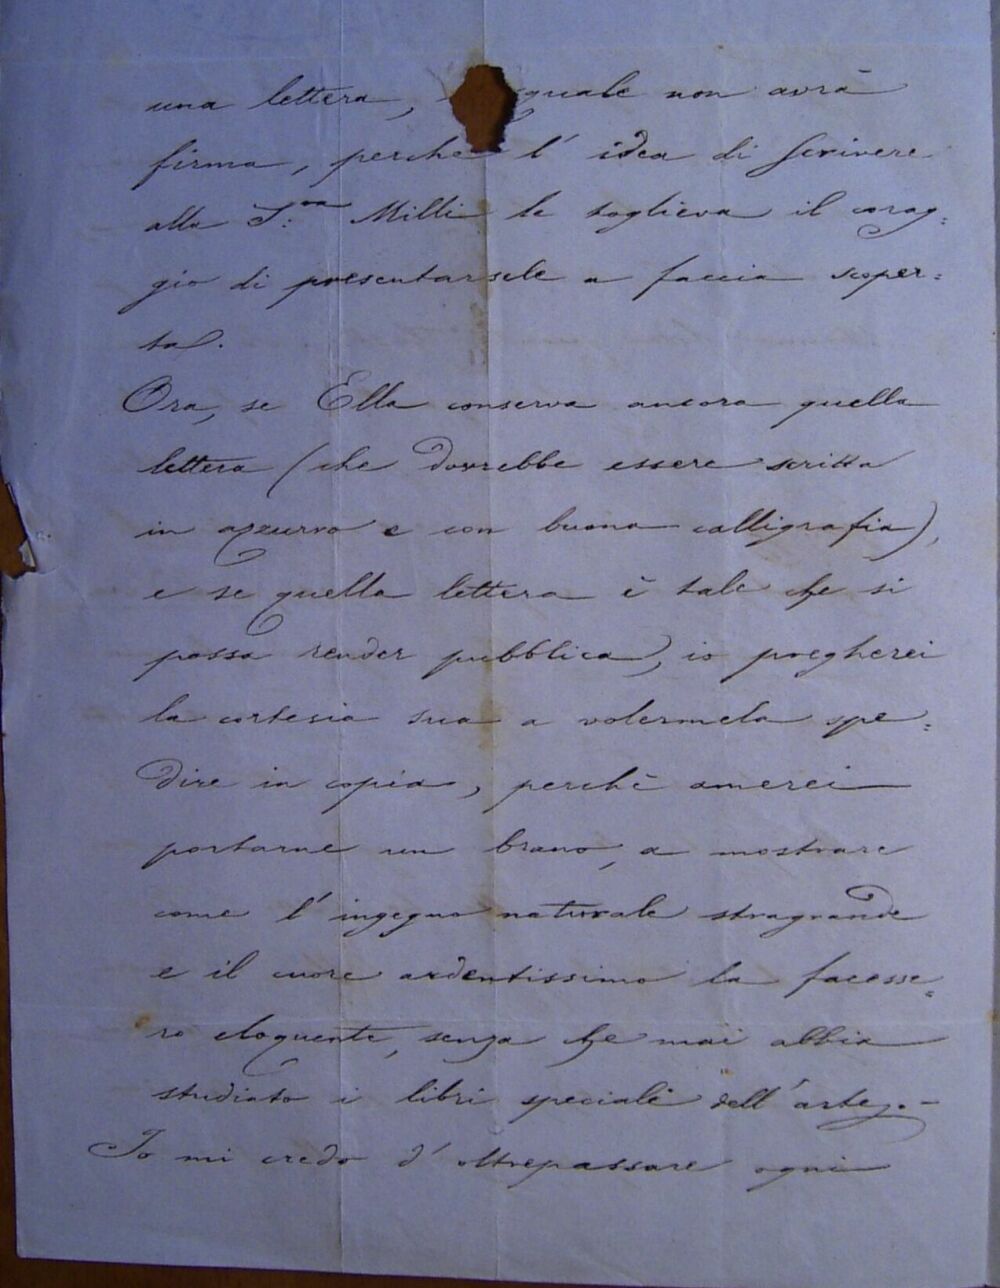 una lettera, quale non avrà
firma, perchè l' idea di scrivere
alla S.ra Milli le toglieva il corag=
gio di presentarsele a faccia scoper=
ta.
Ora, se Ella conserva ancora quella
lettera (che dovrebbe essere scritta
in azzurro e con buona calligrafia),
e se quella lettera è tale che si
possa render pubblica, io pregherei
la cortesia sua a volermela spe=
dire in copia, perchè amerei
portarne un brano, a mostrare
come l' ingegno naturale stragrande
e il cuore ardentissimo la facesse=
ro eloquente, senza che mai abbia
studiato i libri speciali dell' arte. –
Io mi credo d' oltrepassare ogni